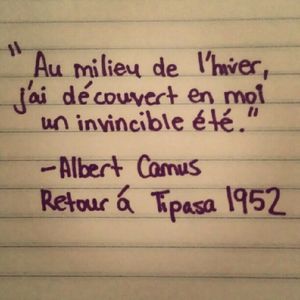 "Au milieu de l'hiver,
j'ai découvert en moi
un invincible été."
-Albert Camus
Retour á Tipasa 1952